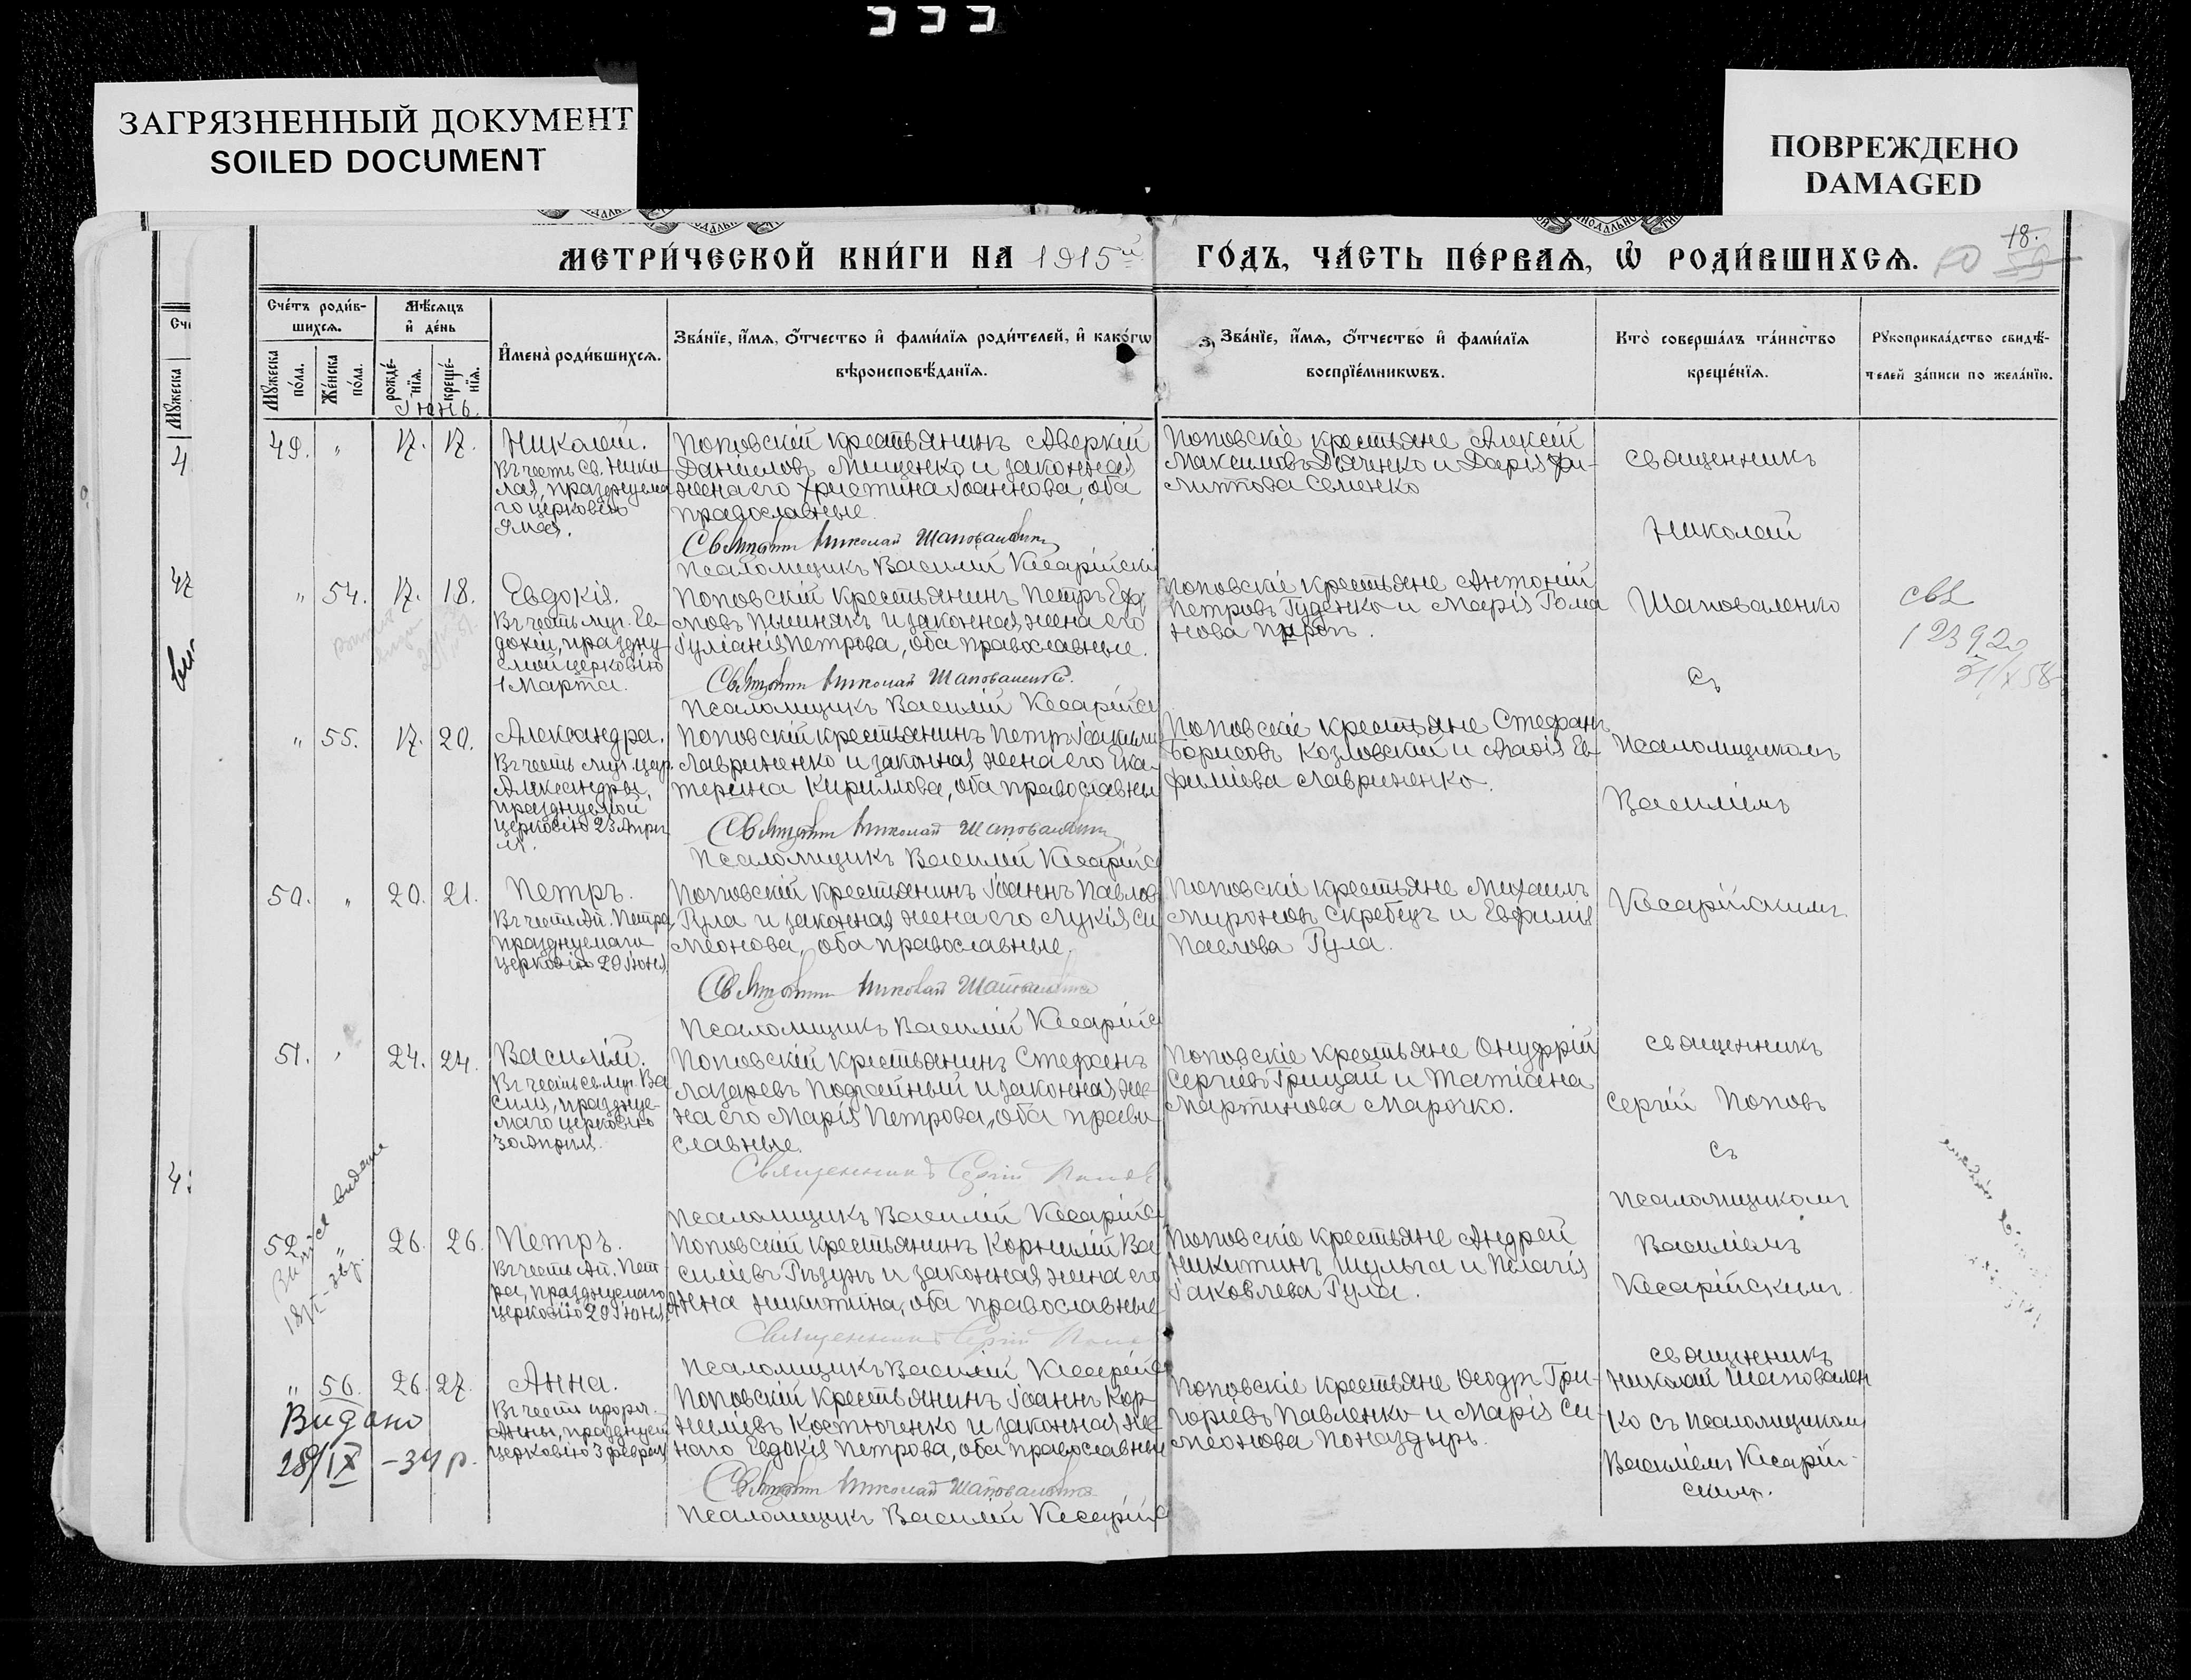 ЗАГРЯЗНЕННЫЙ ДОКУМЕНТ
SOILED DOCUMENT
ПОВРЕЖДЕНО
DAMAGED
МЕТРИ́ЧЕСКОЙ КНИ́ГИ НА 1915й ГО́ДЪ, ЧА́СТЬ ПЕ́РВАѦ, Ѡ РОДИ́ВШИХСѦ.
18.
Сче́тъ роди́в-
шихсѧ.
Мѣ́сѧцъ
и҆ де́нь
Мꙋжеска
по́ла.
Же́нска
по́ла.
рожде́-
нїѧ.
креще́-
нїѧ.
И҆мена̀ роди́вшихсѧ.
Зва́нїе, и҆́мѧ, ѻ҆́тчество и҆ фами́лїѧ роди́телей, и҆ како́гѡ
вѣроисповѣ́данїѧ.
Зва́нїе, и҆́мѧ, ѻ҆́тчество и҆ фами́лїѧ
воспрїе́мникѡвъ.
Кто̀ соверша́лъ та́инство
креще́нїѧ.
Рꙋкоприкла́дство свидѣ́-
телей за́писи по жела́нїю.
Іюнь.
49. " 17. 17. Николай.
Въ честь св. Нико-
лая, празднуема
го церковію
9 мая.
Поповскій крестьянинъ Аверкій
Даніиловъ Мищенко и законная
жена его Христина Іоаннова, оба
православные.
Николай Шаповаленко
Псаломщикъ Василій Кесарійскі
Поповскіе крестьяне Алексій
Максимовъ Дяченко и Дарія Фи-
липпова Семенко
священникъ
Николай
Шаповаленко
съ
Псаломщикомъ
Василіемъ
Кесарійскимъ.
" 54. 17. 18. Евдокія.
Въ честь муч. Ев-
докіи, праздну-
емой церковію
1 Марта.
Поповскій крестьянинъ Петръ
и законная жена его
Іуліанія Петрова, оба православные.
Николай Шаповаленко.
Псаломщикъ Василій Кесарійс
Поповскіе крестьяне Антоній
Петровъ Гуденко и Марія Рома
нова
123920
" 55. 17. 20. Александра.
Въ честь муч. цар.
Александры,
празднуемой
церковію 23 Апрѣ
ля.
Поповскій крестьянинъ Петръ Іоакимо
Лавриненко и законная жена его Ека-
терина Кириллова, оба православны
Николай Шаповаленко
Псаломщикъ Василій Кесарійс
Поповскіе крестьяне Стефанъ
Борисовъ Козловскій и Агафія Ев-
фиміева Лавриненко.
50. " 20. 21. Петръ.
Въ честь Ап. Петра
празднуемаго
церковію 29 Іюня.
Поповскій крестьянинъ Іоаннъ Павлов
Гула и законная жена его Лукія Си
меонова, оба православные.
Николай Шаповаленко
Псаломщикъ Василій Кесарійс
Поповскіе крестьяне Михаилъ
Мироновъ Скребецъ и Евфимія
Павлова Гула.
51. " 24. 24. Василій.
Въ честь св. муч. Ва
силія, праздnуе-
маго церковію
30 Апрѣля.
Поповскій крестьянинъ Стефанъ
Лазаревъ и законная же-
на его Марія Петрова, оба право
славные.
Священникъ Сергій Поповъ
Псаломщикъ Василій Кесарійс
Поповскіе крестьяне Онуфрій
Сергіевъ Грицай и Татіана
Мартинова Марочко.
священникъ
Сергій Поповъ
съ
псаломщикомъ
Василіемъ
Кесарійскимъ.
52. " 26. 26. Петръ.
Въ честь Ап. Пет-
ра, празднуемаго
церковію 29 Іюня.
Поповскій крестьянинъ Корнилій Ва
силіевъ и законная жена его
Анна Никитина, оба православные
Священникъ Сергій Поповъ
Псаломщикъ Василій Кесарійс
Поповскіе крестьяне Андрей
Никитинъ Шульга и Пелагія
Іаковлева Гула.
" 56. 26. 27. Анна.
Въ честь прор.
Анны, празднуем
церковію 3 февраля
Видано
28/IX -34 р.
Поповскій крестьянинъ Іоаннъ Кор-
ниліевъ Костюченко и законная же
на его Евдокія Петрова, оба православные
Николай Шаповаленко
Псаломщикъ Василій Кесарійс
Поповскіе крестьяне Ѳеодръ Гри-
горіевъ Павленко и Марія Си-
меонова Поназдырь.
священникъ
Николай Шаповален
ко съ псаломщикомъ
Василіемъ Кесарій-
скимъ.